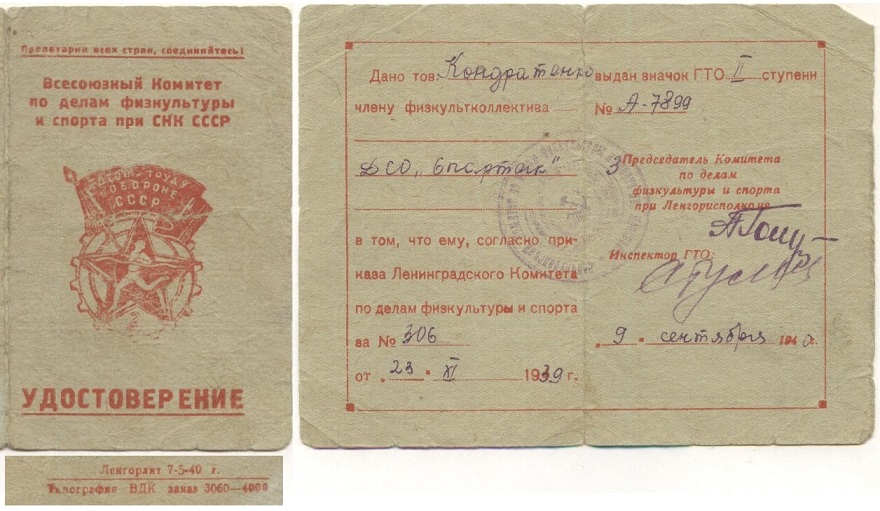 Пролетарии всех стран, соединяйтесь!
Всесоюзный Комитет
по делам физкультуры
и спорта при СНК СССР
ГОТОВ К ТРУДУ
И ОБОРОНЕ
СССР
УДОСТОВЕРЕНИЕ
Ленгорлит 7-5-40 г.
Типография ВДК заказ 3060—4000
Дано тов. Кондратенко
члену физкультколлектива
ДСО „Спартак"
в том, что ему, согласно при-
каза Ленинградского Комитета
по делам физкультуры и спорта
за № 306
от „23" XI 1939 г.
выдан значок ГТО II ступени
№ А-7899
Председатель Комитета
по делам
физкультуры и спорта
при Ленгорисполкоме
Инспектор ГТО:
„9" сентября 1940 г.